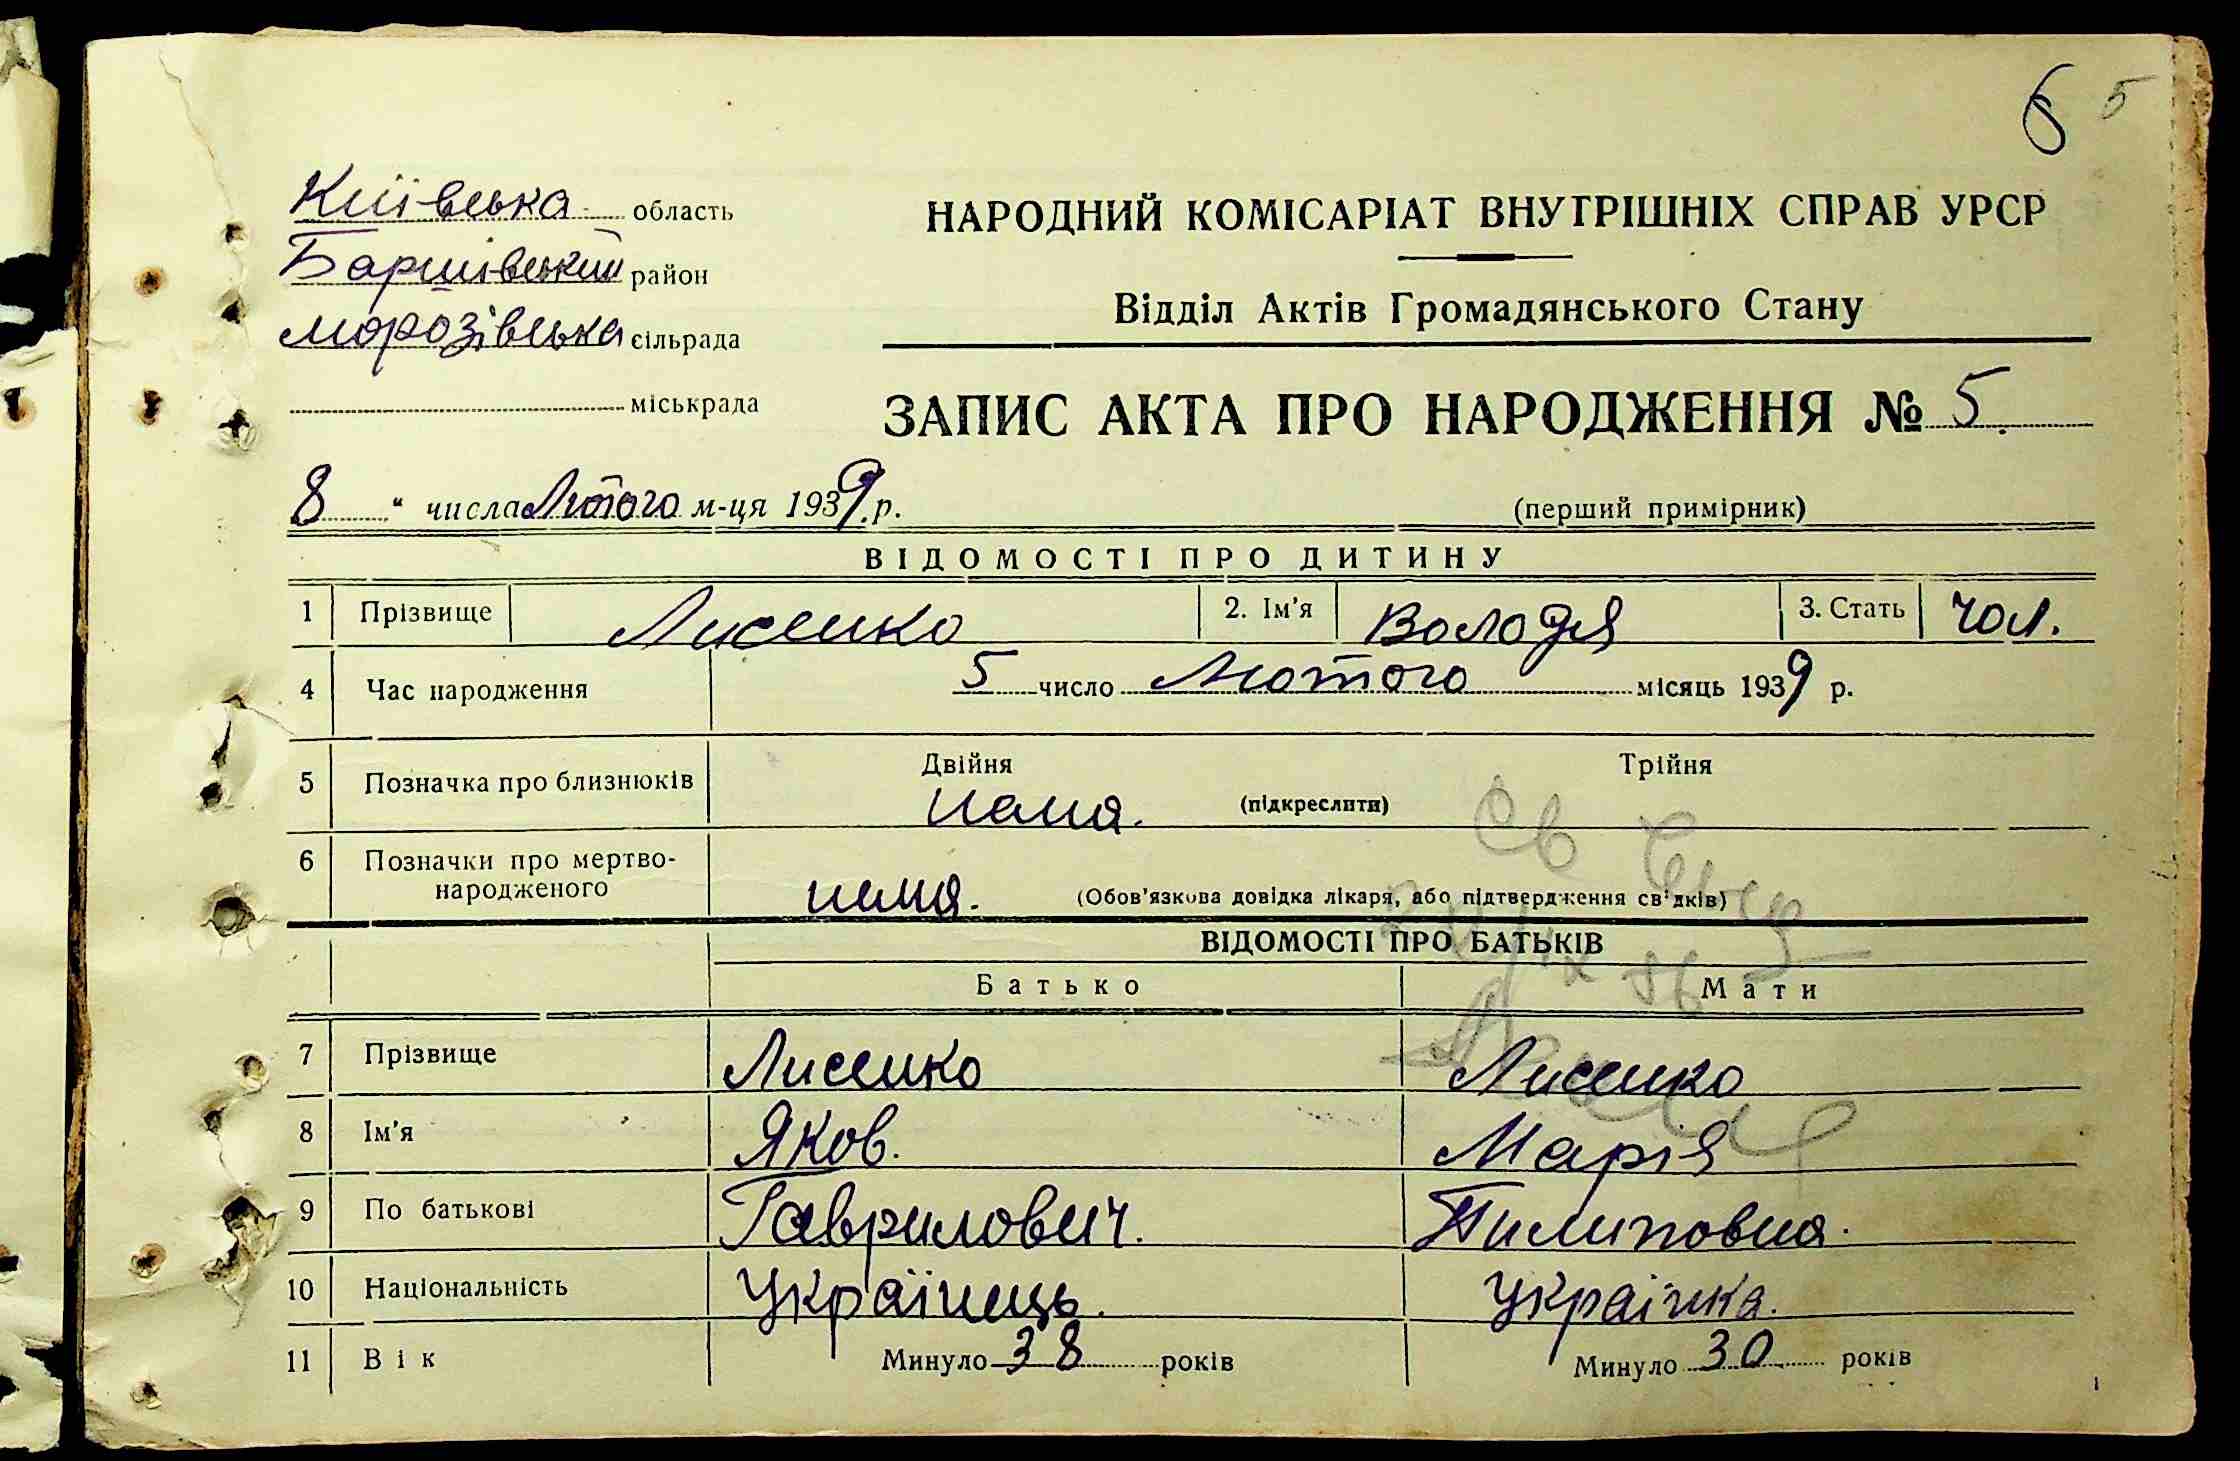 6 5
Київська область
Баришівський район
Морозівська сільрада
міськрада
НАРОДНИЙ КОМІСАРІАТ ВНУТРІШНІХ СПРАВ УРСР
Відділ Актів Громадянського Стану
ЗАПИС АКТА ПРО НАРОДЖЕННЯ № 5.
8 " числа Лютого м-ця 1939 р.
(перший примірник)
ВІДОМОСТІ ПРО ДИТИНУ
1 Прізвище Лисенко 2. Ім'я Володя 3. Стать чол.
4 Час народження 5 число Лютого місяць 1939 р.
5 Позначка про близнюків Двійня Трійня
нема. (підкреслити)
6 Позначки про мертво-
народженого нема. (Обов'язкова довідка лікаря, або підтвердження свідків)
ВІДОМОСТІ ПРО БАТЬКІВ
Батько Мати
7 Прізвище Лисенко Лисенко
8 Ім'я Яков. Марія
9 По батькові Гаврилович. Пилиповна.
10 Національність Українець. Українка.
11 Вік Минуло 38 років Минуло 30 років